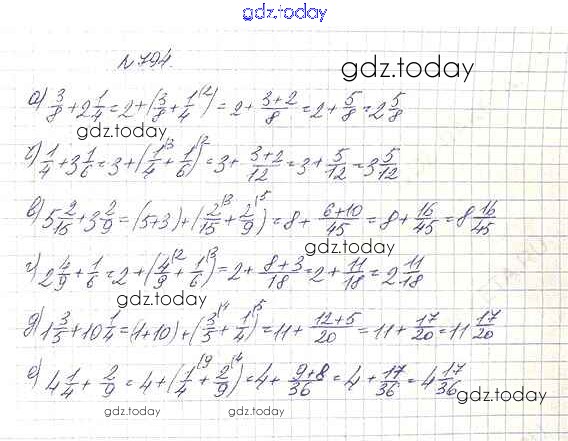 gdz.today
№794.
gdz.today
а) 3/8 + 2 1/4 = 2 + (3/8 + 1/4^(2)) = 2 + (3+2)/8 = 2 + 5/8 = 2 5/8
gdz.today
б) 1/4 + 3 1/6 = 3 + (1/4^(3) + 1/6^(2)) = 3 + (3+2)/12 = 3 + 5/12 = 3 5/12
в) 5 2/15 + 3 2/9 = (5+3) + (2/15^(3) + 2/9^(5)) = 8 + (6+10)/45 = 8 + 16/45 = 8 16/45
gdz.today
г) 2 4/9 + 1/6 = 2 + (4/9^(2) + 1/6^(3)) = 2 + (8+3)/18 = 2 + 11/18 = 2 11/18
gdz.today
д) 1 3/5 + 10 1/4 = (1+10) + (3/5^(4) + 1/4^(5)) = 11 + (12+5)/20 = 11 + 17/20 = 11 17/20
е) 4 1/4 + 2/9 = 4 + (1/4^(9) + 2/9^(4)) = 4 + (9+8)/36 = 4 + 17/36 = 4 17/36
gdz.today
gdz.today gdz.today